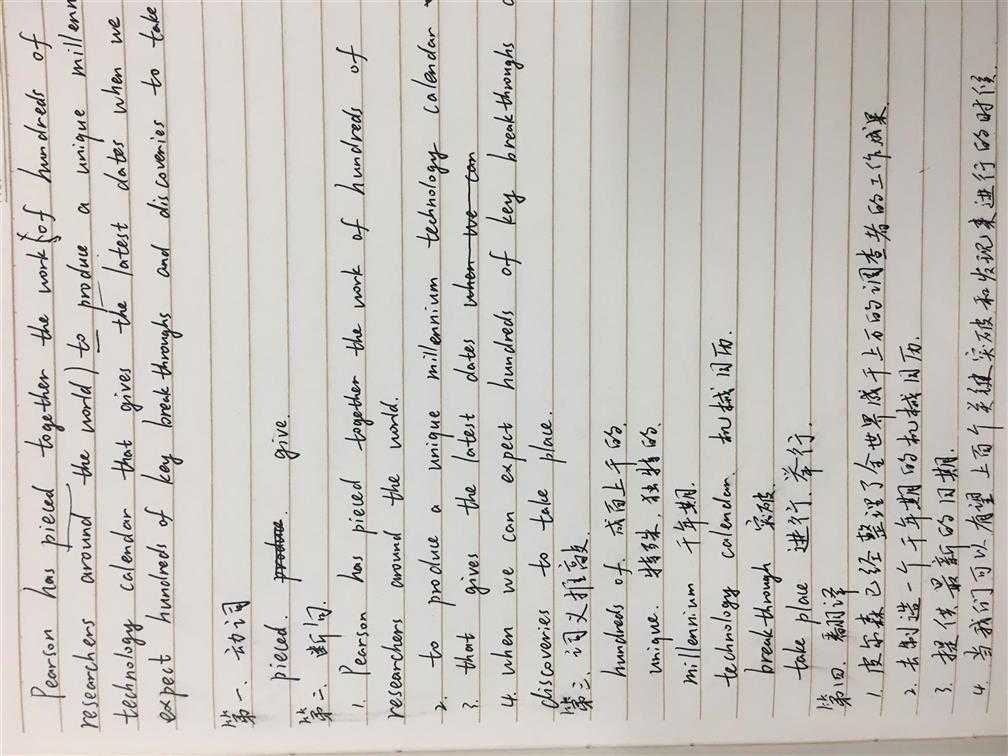 Pearson has pieced together the work (of hundreds of
researchers around the world) to produce a unique millenn
technology calendar that gives the latest dates when we
expect hundreds of key breakthroughs and discoveries to take
第一. 动词
pieced. produce. give.
第二. 断句.
1. Pearson has pieced together the work of hundreds of
researchers around the world.
2. to produce a unique millennium technology calendar
3. that gives the latest dates when we can
4. when we can expect hundreds of key breakthroughs
discoveries to take place.
第三. 词义推敲.
hundreds of. 成百上千的.
unique. 特殊. 独特的.
millennium 千年期.
technology calendar. 机械日历.
breakthrough 突破.
take place 进行. 举行.
第四. 翻译
1. 皮尔森已经整理了全世界成千上万的调查者的工作成果.
2. 去制造一个千年期的机械日历.
3. 提供最新的日期.
4. 当我们可以有望上百个关键突破和发现来进行的时候